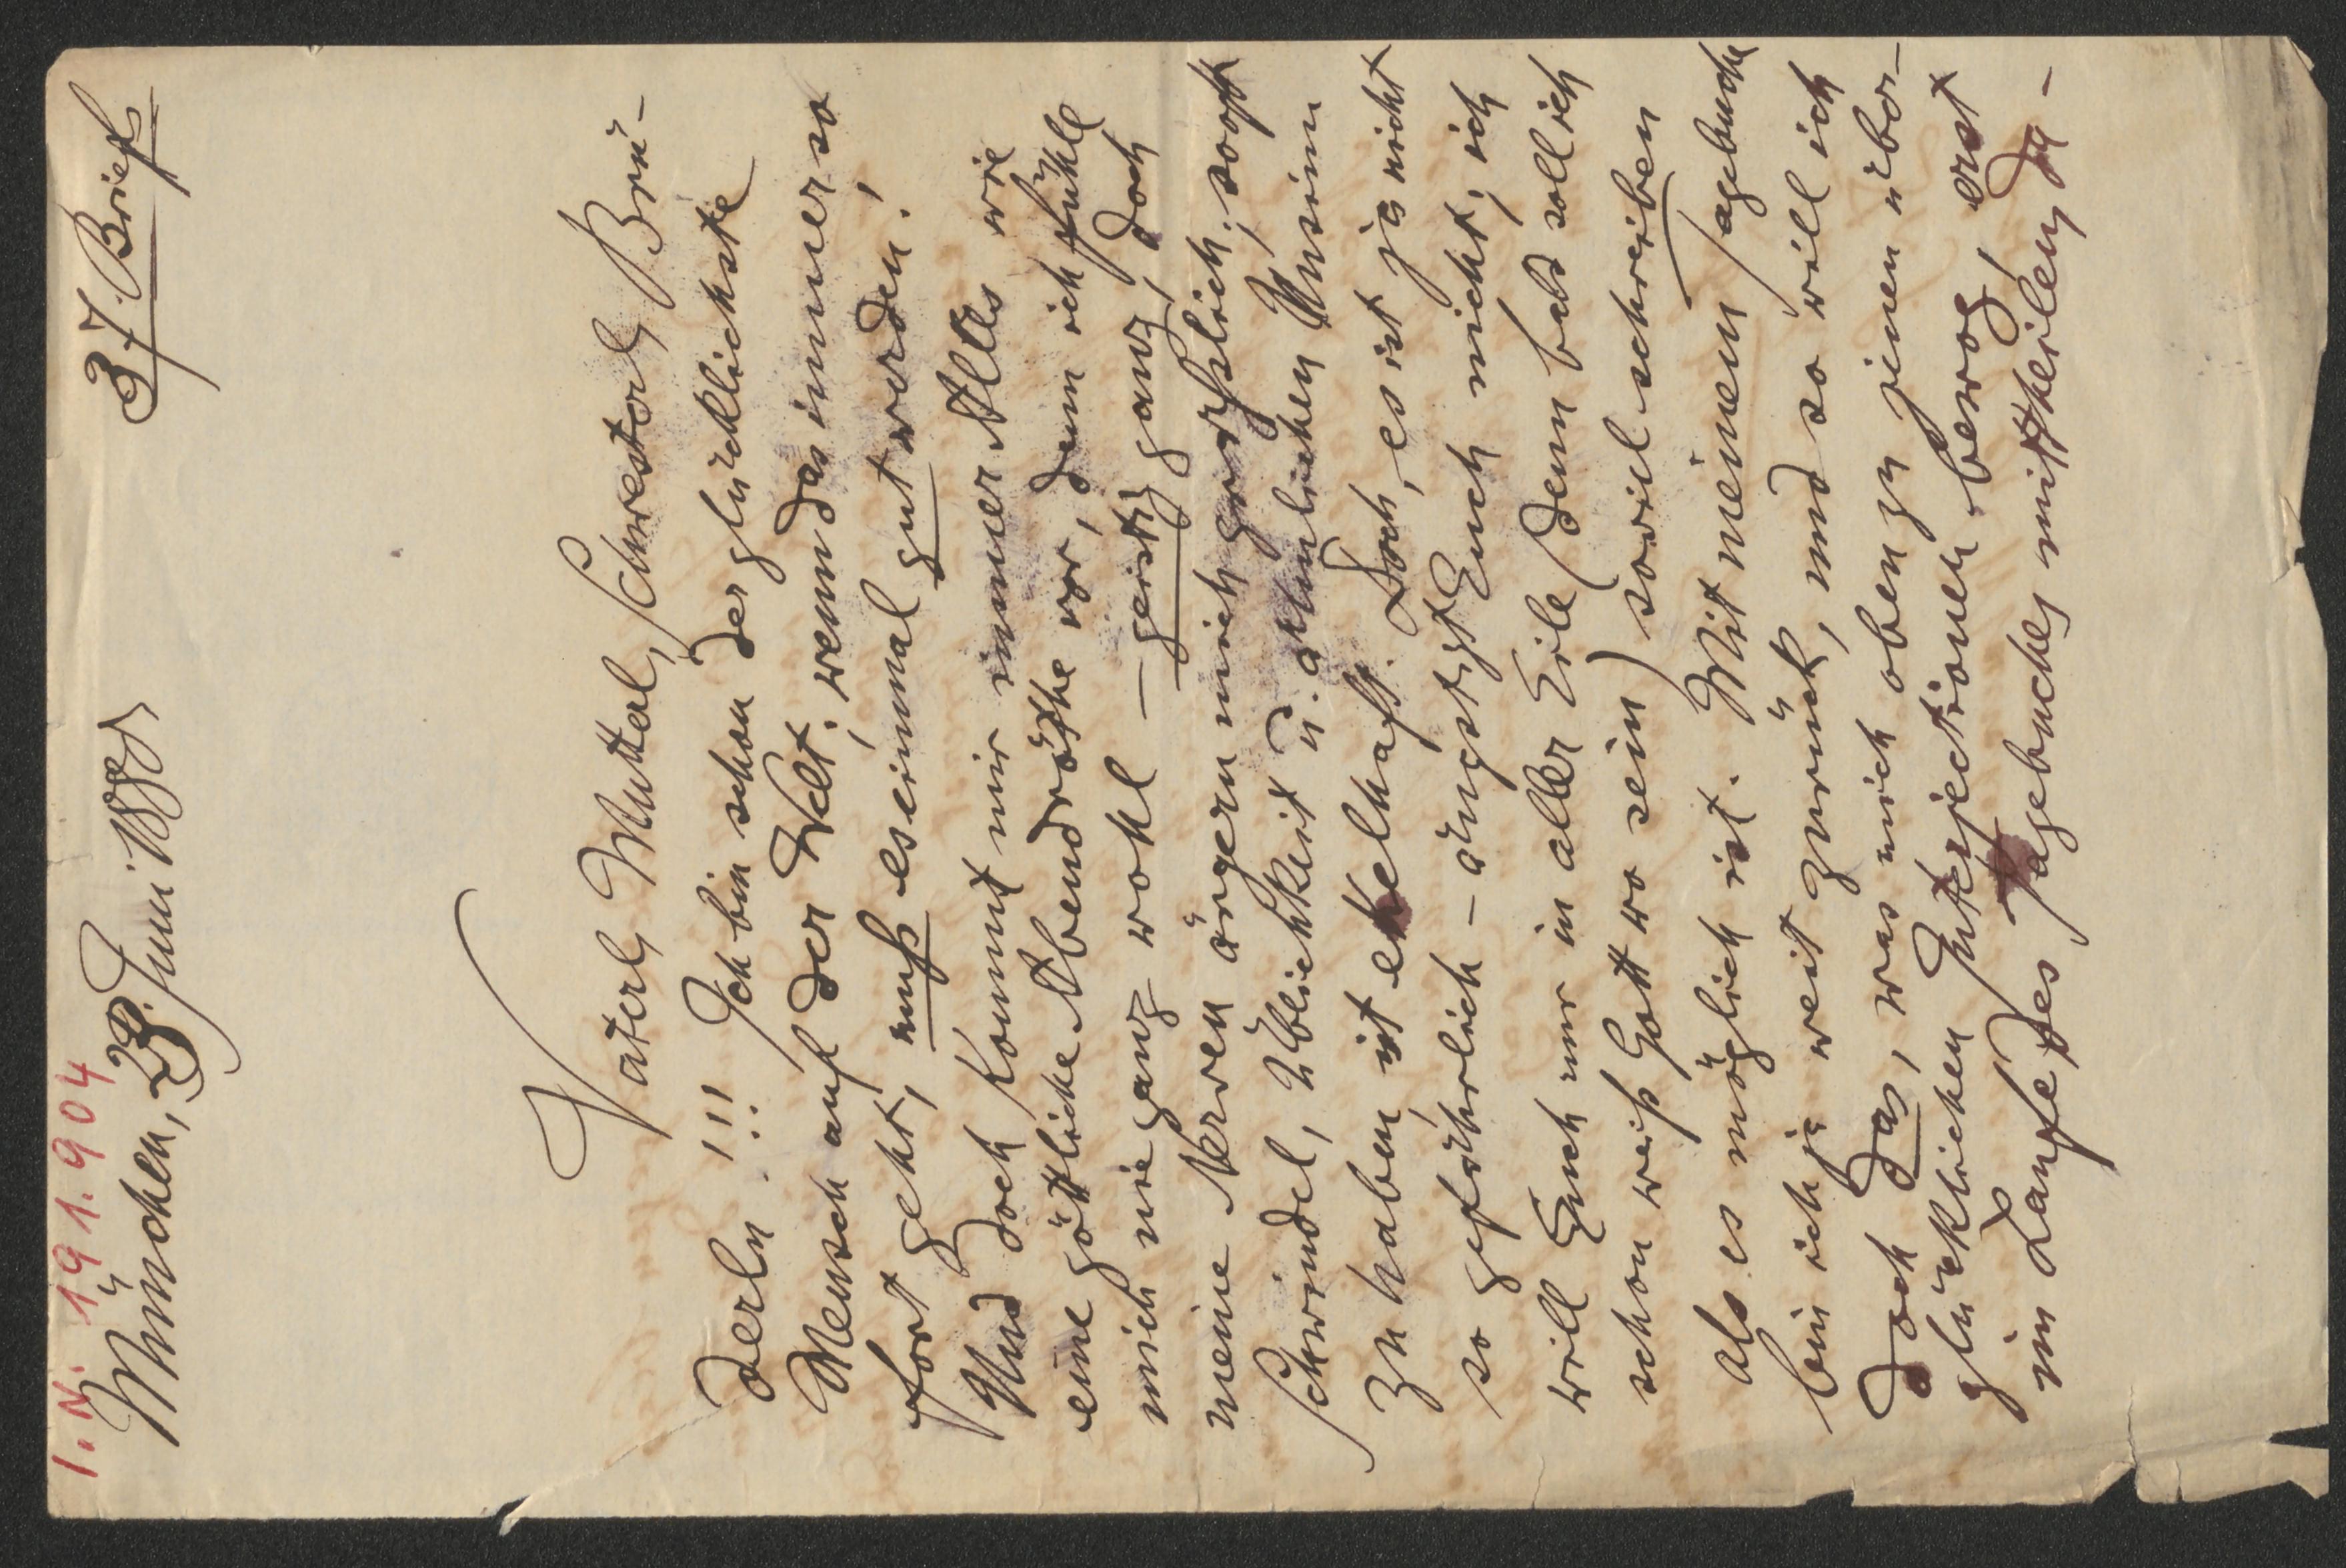 I. N. 191.904
37. Brief
München, 23. Juni 1889
Vaterl, Mutterl, Schwesterl, Brü-
derln !!! Ich bin schon der glücklichste
Mensch auf der Welt; wenn das immer so
fort geht, muß es einmal gut werden!
Und doch kommt mir immer Alles wie
eine göttliche Abendröthe vor, denn ich fühle
mich nie ganz wohl – geistig ganz, doch
meine Nerven ärgern mich gräßlich; so oft
Schwindel, Üblichkeit u. ähnlichen Unsinn
zu haben ist ekelhaft. Doch, es ist ja nicht
so gefährlich – ängstigt Euch nicht; ich
will Euch nur in aller Eile (denn bald soll ich
schon weiß Gott wo sein) soviel schreiben
als es möglich ist. Mit meinem Tagebuche
bin ich ja weit zurück, und so will ich
doch das, was mich oben zu jenen über-
glücklichen Interjectionen bewog, erst
im Laufe des Tagebuches mittheilen, da-